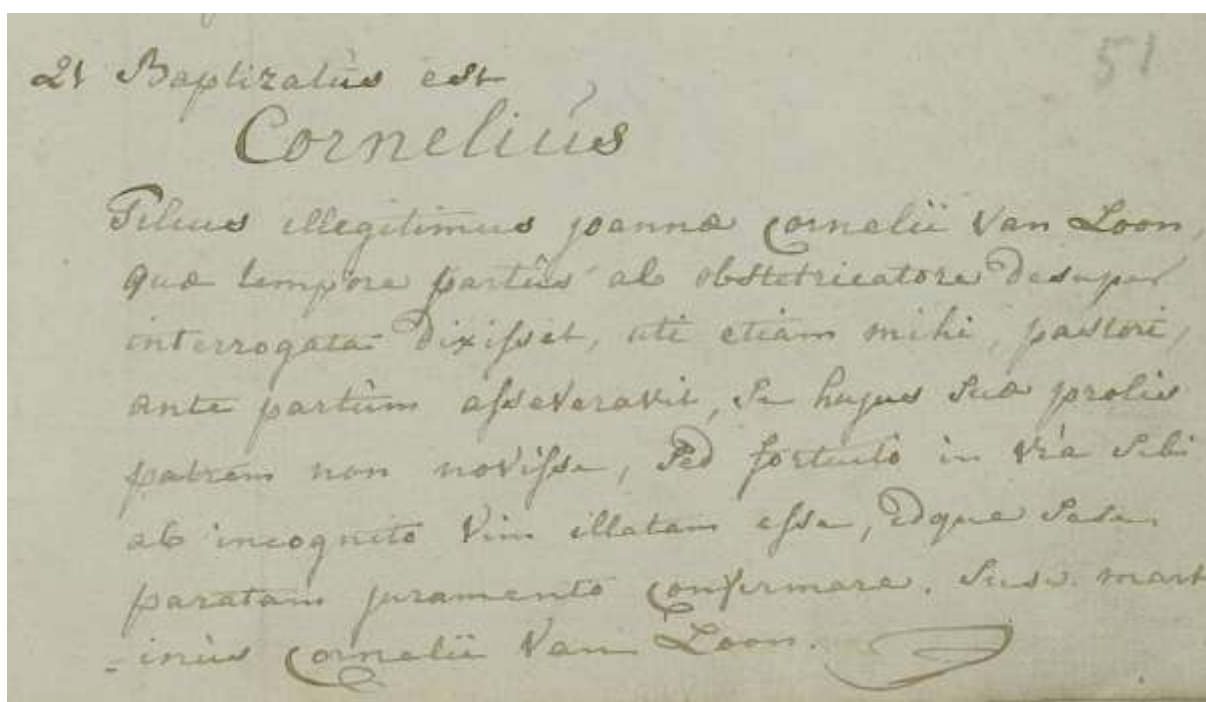 51
21 Baptizatus est
Cornelius
Filius illegitimus joannæ Cornelii Van Loon,
quæ tempore partûs ab obstetricatore desuper
interrogata dixisset, uti etiam mihi, pastori,
ante partum asseveravit, se hujus suæ prolis
patrem non novisse, sed fortuito in via sibi
ab incognito vim illatam esse, idque sese
paratam juramento confirmare. Susc. mart
-inus Cornelii Van Loon.